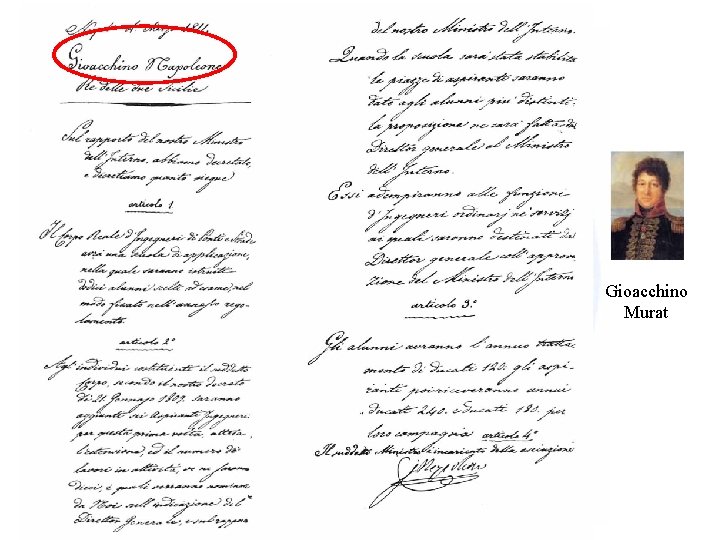 Napoli 4. Marzo 1811.
Gioacchino Napoleone
Re delle due Sicilie
Sul rapporto del nostro Ministro
dell'Interno, abbiamo decretato,
e decretiamo quanto siegue
articolo 1
Il Corpo Reale d'Ingegneri di Ponti e Strade
avrà una scuola di applicazione,
nella quale saranno istruiti
dodici alunni scelti ad esame, nel
modo fissato nell'annesso rego-
lamento.
articolo 2º
Agl'individui costituenti il suddetto
Corpo, secondo il nostro decreto
di 21. Gennajo 1809. saranno
aggiunti sei Aspiranti Ingegneri
per questa prima volta, attesa
l'estensione, ed il numero de'
lavori in attività, ve ne saranno
dieci, i quali verranno nominati
da Noi sull'indicazione del
Direttor Generale, e sul rapporto
del nostro Ministro dell'Interno.
Quando la scuola sarà stata stabilita
le piazze di aspiranti saranno
dato agli alunni più distinti:
la proposizione ne sarà fatta dal
Direttor generale al Ministro
dell'Interno.
Essi adempiranno alle funzioni
d'Ingegneri ordinarj ne' servizj
ne quale saranno destinati dal
Direttor generale coll'approva
zione del Ministro dell'Interno
articolo 3.º
Gli alunni avranno l'annuo tratta-
mento di ducati 120. gli aspi-
ranti poi riceveranno annui
ducati 240. e ducati 180. per
loro compagnia articolo 4º
Il suddetto Ministro è incaricato della esecuzione
Gioacchino
Murat